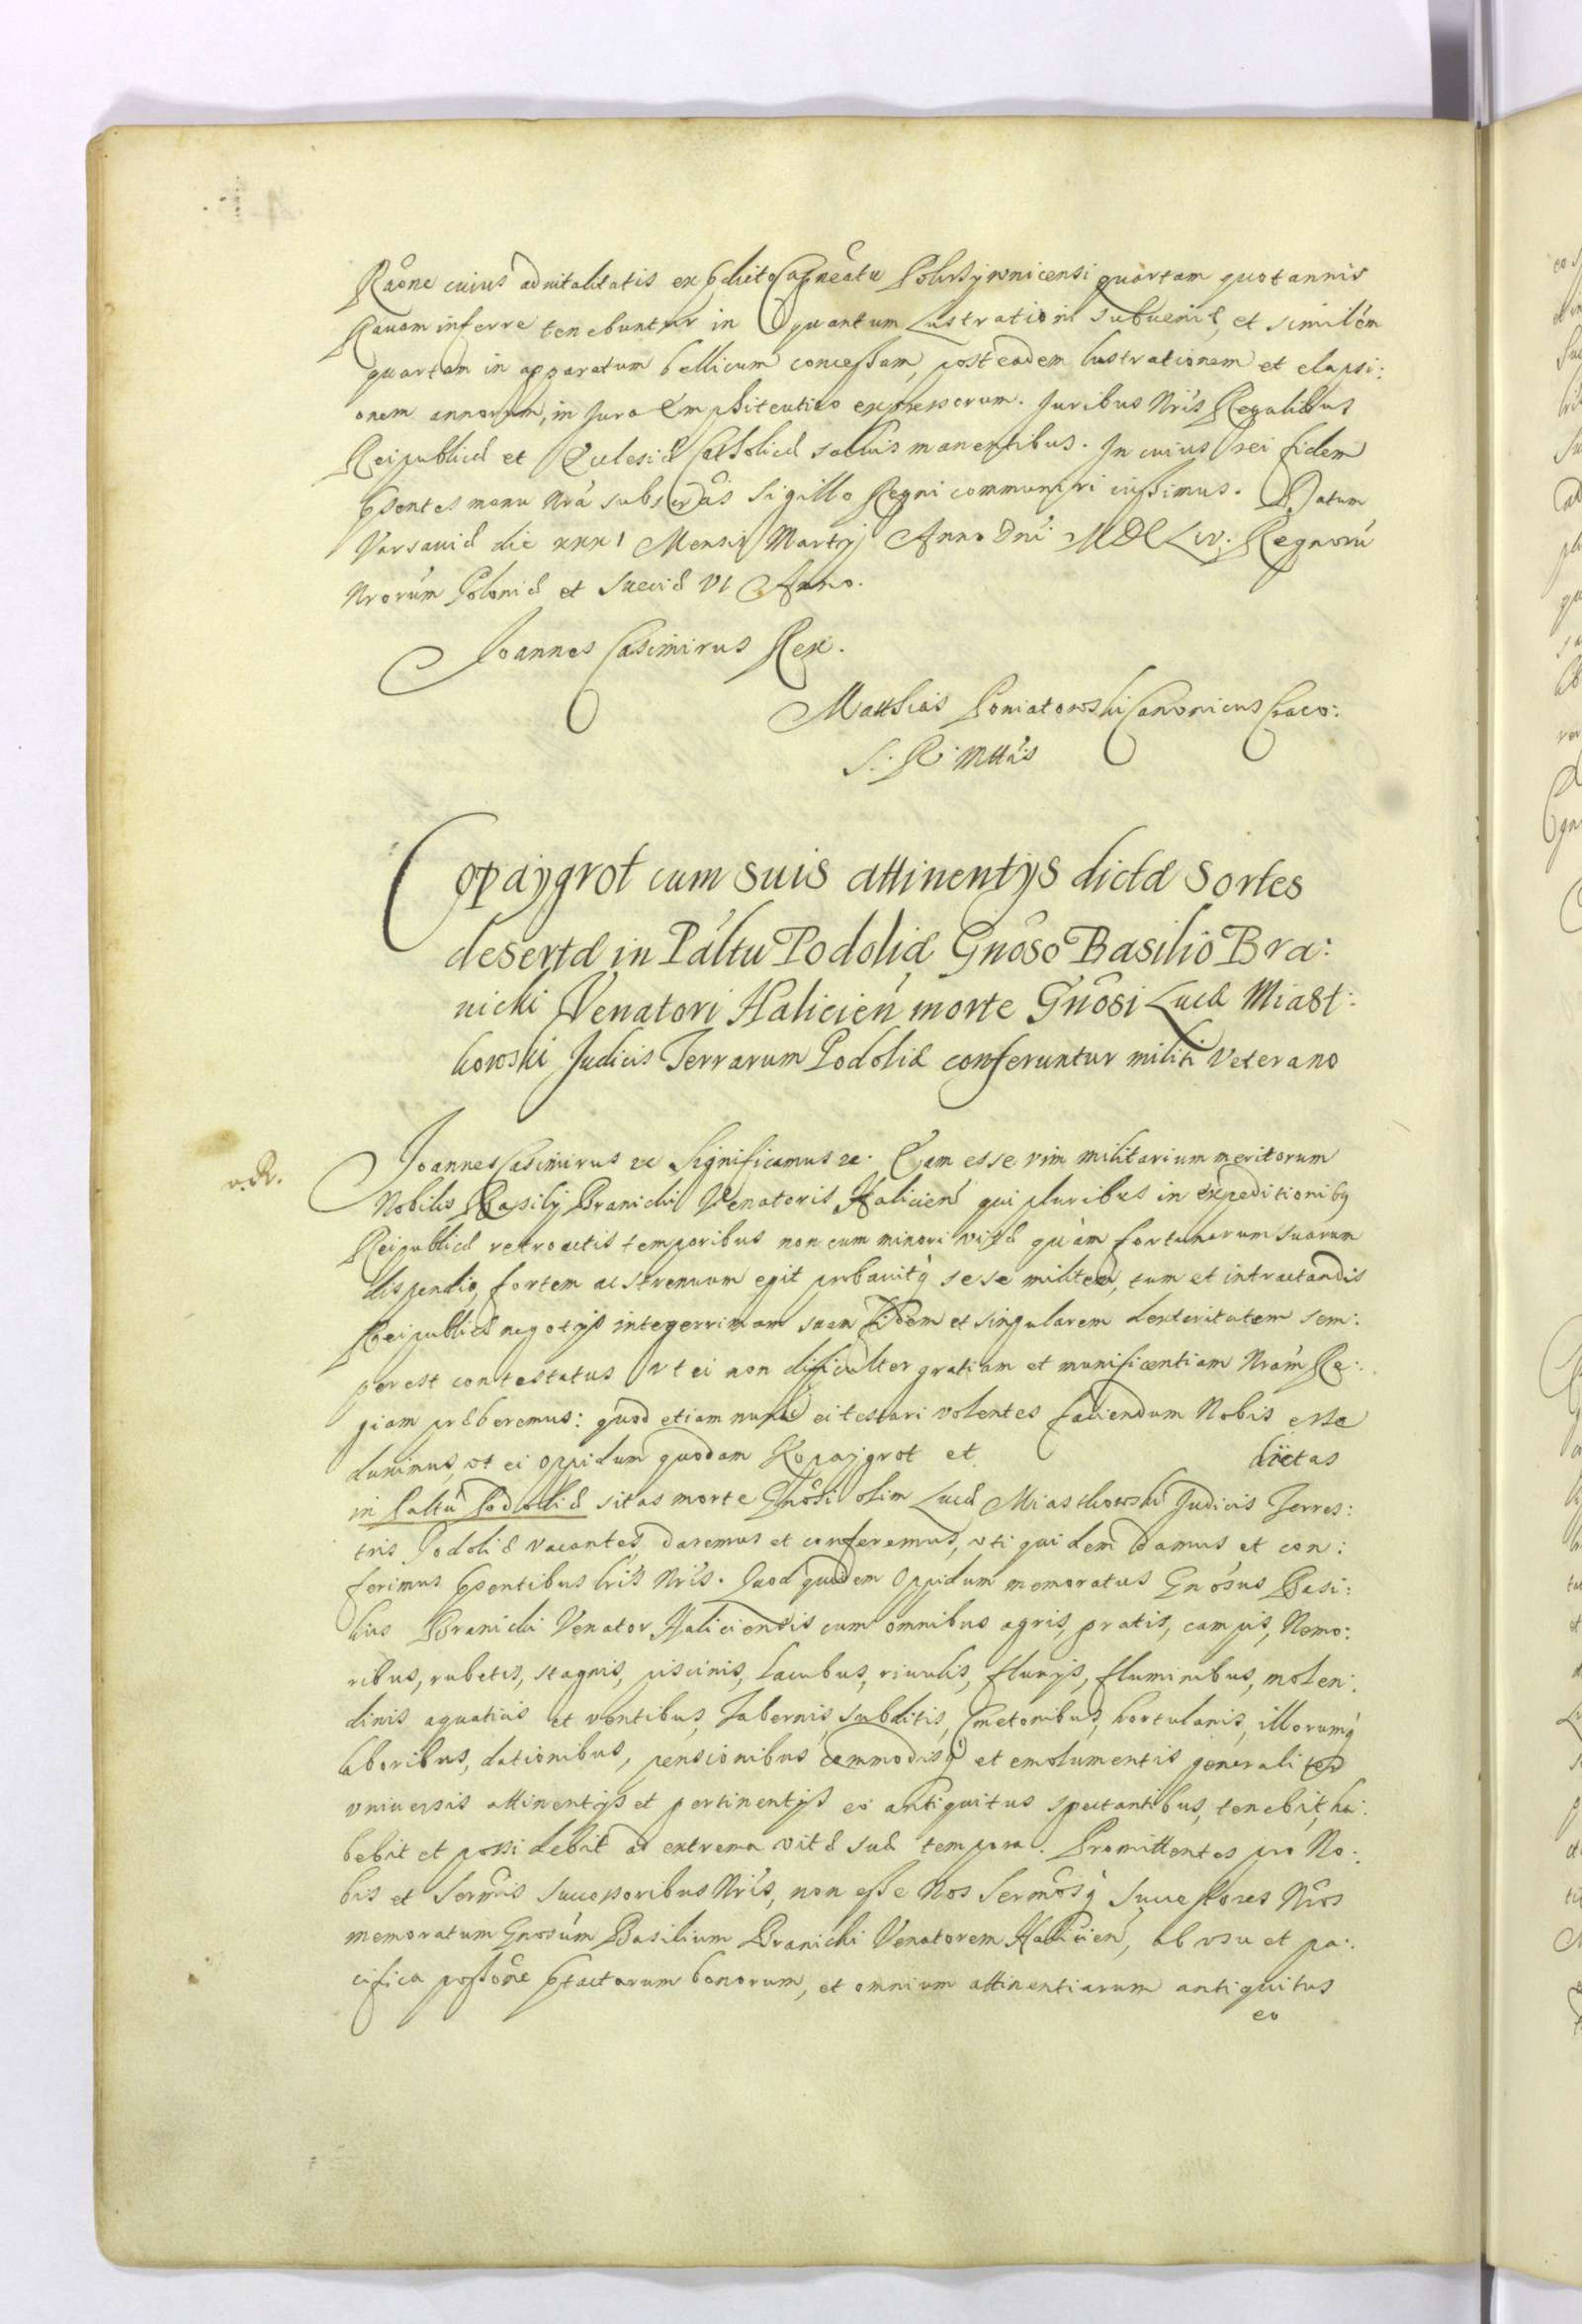 Raône cuius advitalitatis ex pdicto Capneatu quartam quotannis
Ravam inferre tenebuntur in quantum Lustrationi subuenit, et similem
quartam in apparatum bellicum concessam, post eadem lustrationem et elapsi:
onem annorum, in Jure Emphiteutico expressorum. Juribus Nris Regalibus
Reipublicæ et Ecclesiæ Catholicæ saluis manentibus. In cuius rei fidem
Psentes manu Nrâ subscrâs Sigillo Regni communiri iussimus. Datum
Varsauiæ die xxxi Mensis Martij Anno Dni MDCLiv. Regnorũ
Nrorum Poloniæ et Sueciæ VI Anno.
Joannes Casimirus Rex.
Matthias Poniatowski Canonicus Craco:
S. R. Mttis
Copaygrot cum suis attinentijs dictæ Sortes
desertæ in Páltu Podoliæ Gnôso Basilio Bra:
nicki Venatori Halicień morte Gnôsi Lucæ Miast:
kowski Judicis Terrarum Podoliæ conferuntur militi Veterano
v. R.
Joannes Casimirus &c Significamus &c. Eam esse vim militarium meritorum
Nobilis Basilij Branicki Venatoris Halicień qui pluribus in expeditionibq
Reipublicæ retroactis temporibus non cum minori vitæ quàm fortunarum suarum
dispendio, fortem ac strenuum egit probauitq se se militem, tum et in tractandis
Reipublicæ negotijs integerrimam suam Fidem et singularem dexteritatem sem:
per est contestatus vt ei non difficulter gratiam et munificentiam Nram Re:
giam præberemus: quod etiam nunc ei testari volentes faciendum Nobis esse
duximus, vt ei oppidum quodam Kopajgrot et dictas
in Paltu Podoliæ sitas morte Gnôsi olim Lucæ Miastkowski Judicis Terres:
tris Podoliæ vacantes daremus et conferemus, vti quidem damus et con:
ferimus Psentibus lris Nris. Quod quidem Oppidum memoratus Gnosus Basi:
lius Branicki Venator Haliciensis cum omnibus agris, pratis, campis, Nemo:
ribus, rubetis, stagnis, piscinis, lacubus, riuulis, fluuijs, fluminibus, molen:
dinis aquaticis et ventibus, Tabernis, subditis, Cmetonibus, hortulanis, illorumq
laboribus, dationibus, pensionibus commodisq et emolumentis generaliter
vniuersis attinentijs et pertinentijs eò antiquitus spectantibus, tenebit, ha:
bebit et possidebit ad extrema vitæ suæ tempora. Promittentes pro No:
bis et Sermis Successoribus Nris, non esse Nos Sermosq Successores Nros
memoratum Gnosum Basilium Branicki Venatorem Halicień, ab vsu et pa:
cifica possône Pfactorum bonorum, et omnium attinentiarum antiquitus
eo